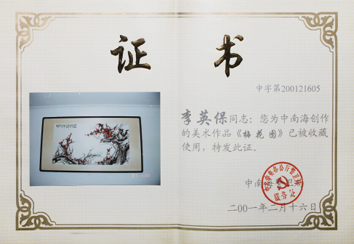 证 书
中字第200121605
李英保同志：您为中南海创作
的美术作品《梅花图》已被收藏
使用，特发此证。
中南
二00一年二月十六日